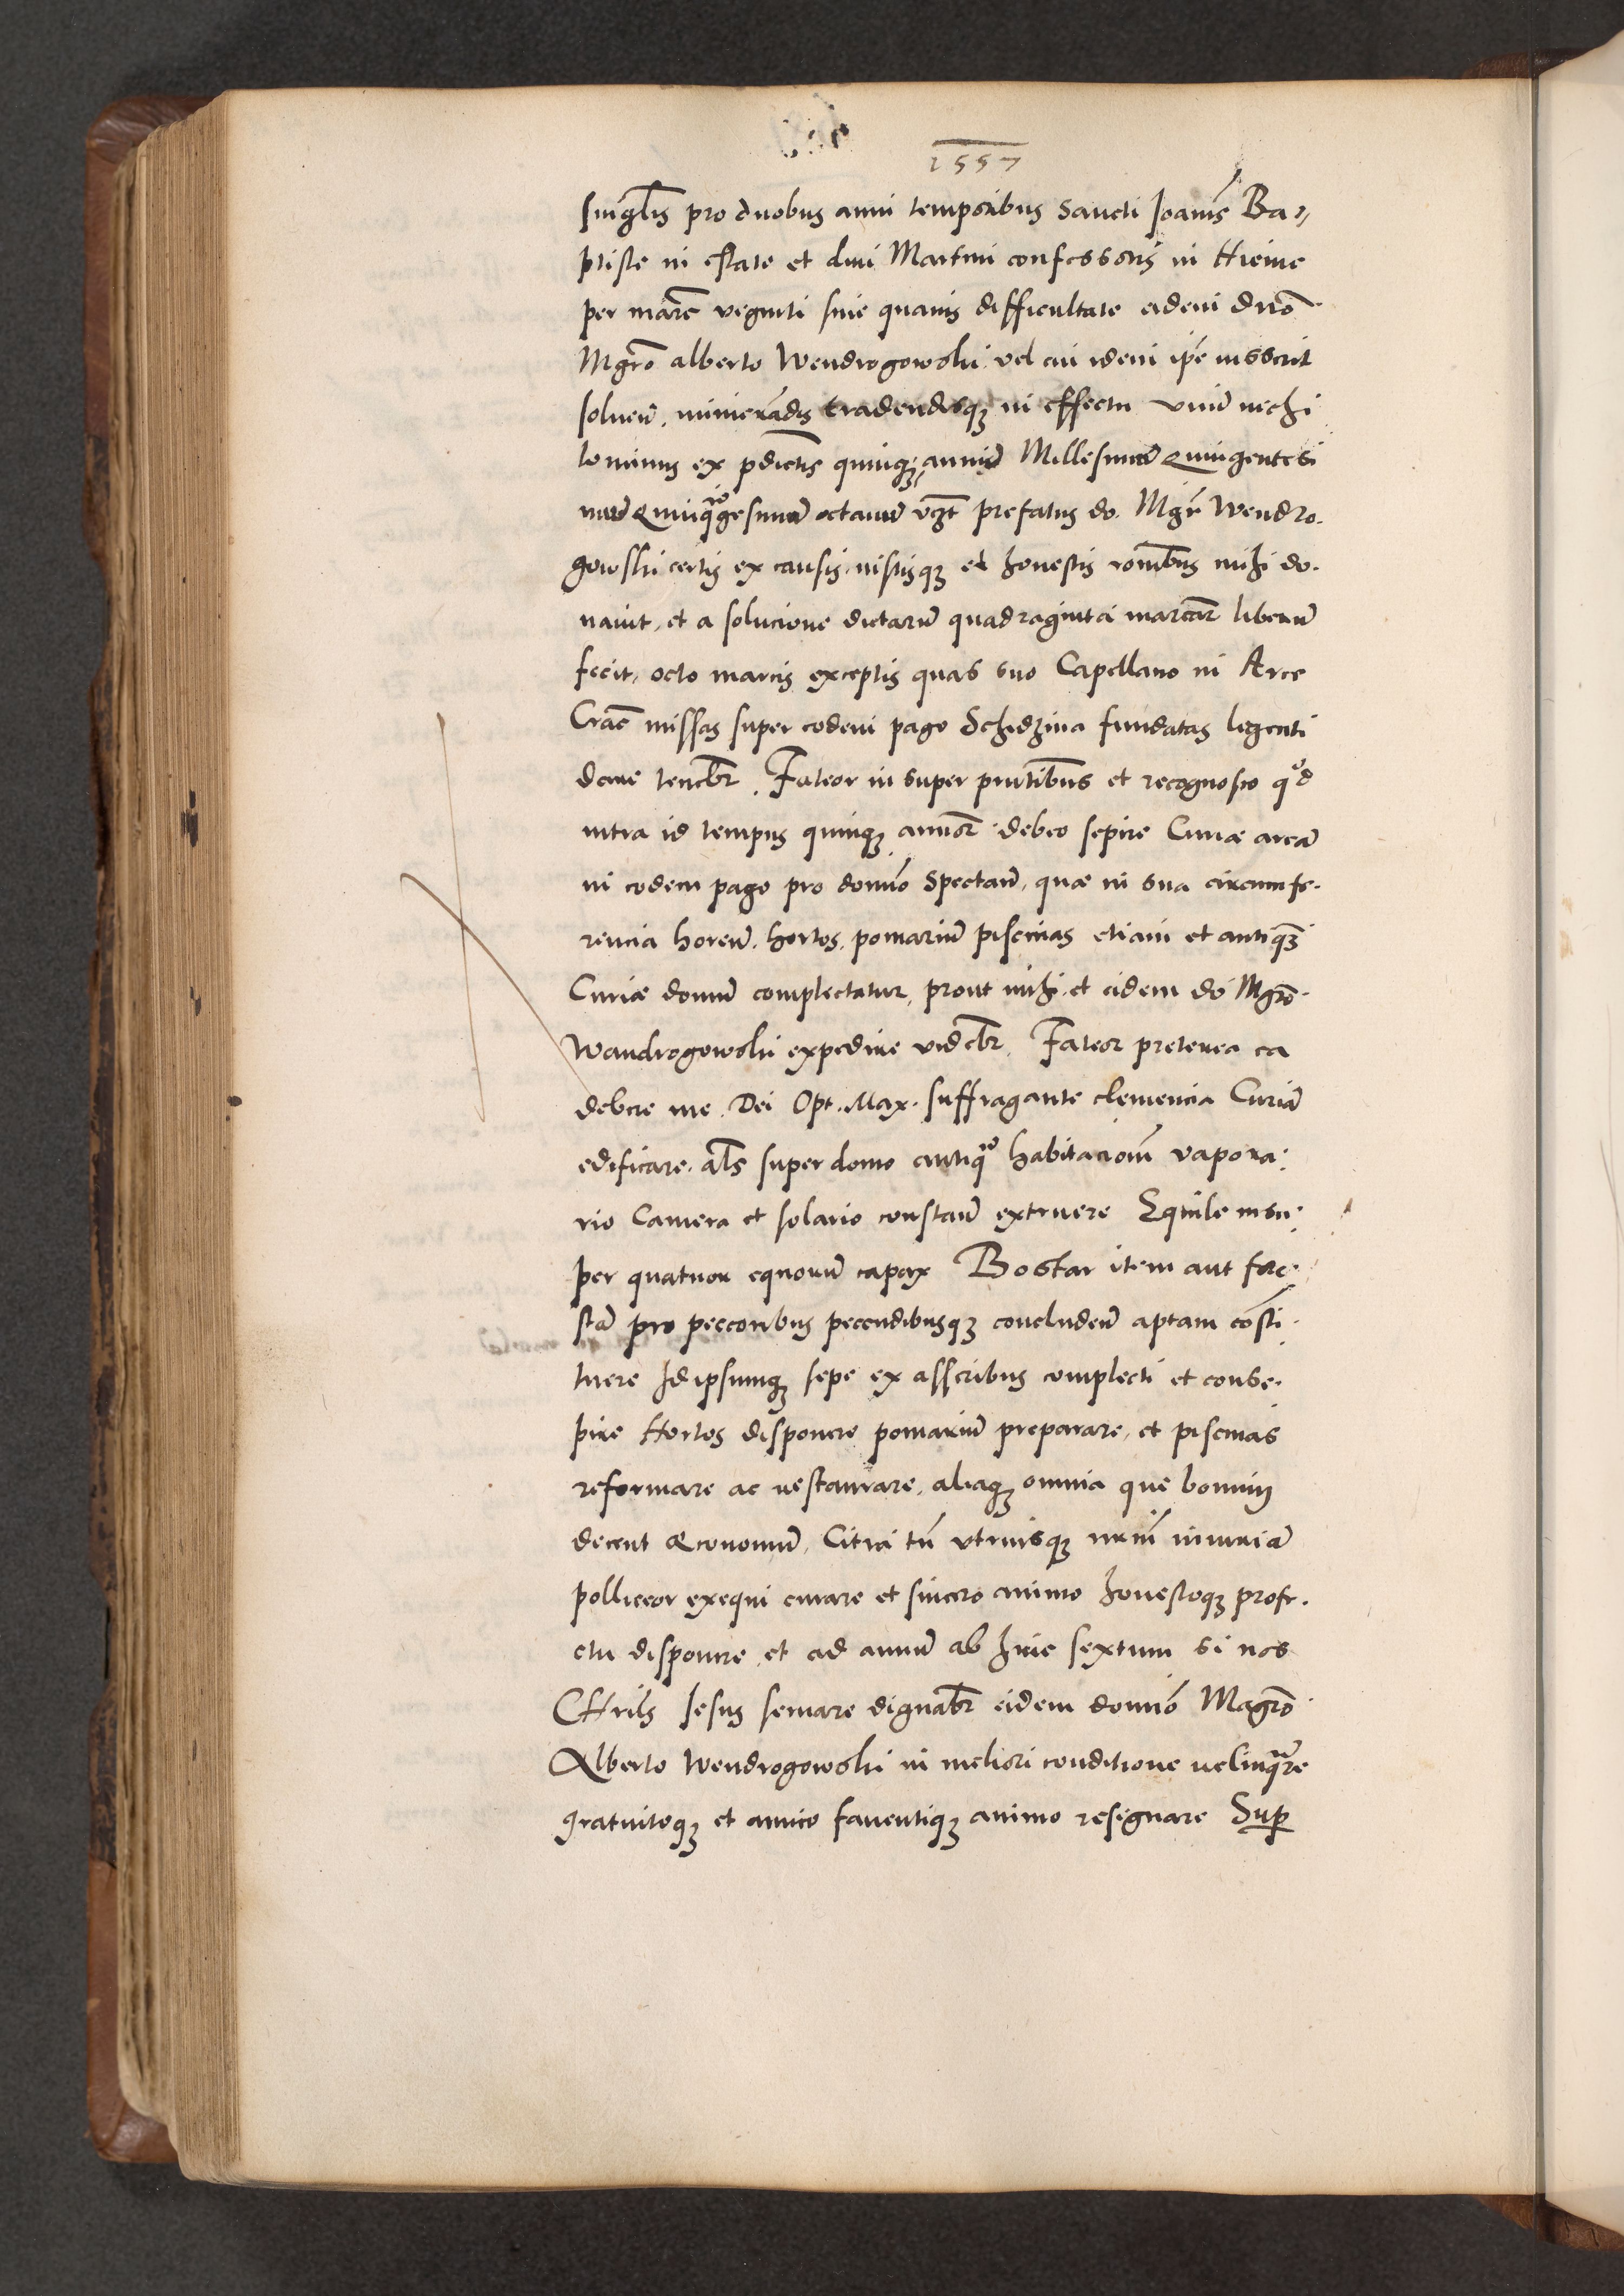 1557
singlis pro duobus anni temporibus Sancti Joanis Ba⸗
ptiste in estate et divi Martini confessoris in Hieme
per marc viginti sine quavis difficultate eidem dno
Mgro alberto Wendrogowski vel cui idem ipe iusserit
soluen. numerandis tradendisqz in effectu unum nichi
lominus ex pdictis quinqz annum Millesimum Quingentesi
mum Quinquagesimum octavum vzt prefatus do. Mgr Wendro.
gowski certis ex causis iustisqz et honestis ronibus mihi do.
navit, et a solucione dictarum quadraginta marcar liberum
fecit, octo marcis exceptis quas suo Capellano in Arce
Crac missas super eodem pago Schidzina fundatas legenti
dare tenebr. Fateor in super pntibus et recognosco qod
intra id tempus quinqz annor debeo sepire Curiae aream
in eodem pago pro domino spectan, quae in sua circumfe.
rencia horeum. hortos. pomarium piscinas etiam et antiqam
Curiae domum complectatur, prout mihi et eidem do Mgro.
Wandrogowski expedire videbr. Fateor preterea ea
debere me. Dei Opt. Max. suffragante clemencia Curiam
edificare. als super domo antiqua habitacionem vapora:
rio Camera et solario constan extruere Equile insu:
per quatuor equorum capax Bostar item aut
pro peccoribus pecudibusqz concluden aptam consti.
tuere Idipsumqz sepe ex asseribus complecti et conse.
pire Hortos disponere pomarium preparare, et piscinas
reformare ac restaurare, aliaqz omnia que bonum
decent oeconomum, Citra tn utriusqz nrum iniuriam
polliceor exequi curare et sincero animo honestoqz profe.
ctu disponere et ad annum ab hinc sextum si nos
Jesus servare dignabr eidem domino Magro
Alberto Wendrogowski in meliori conditione relinquere
gratuitoqz et amico faventiqz animo resignare Sup